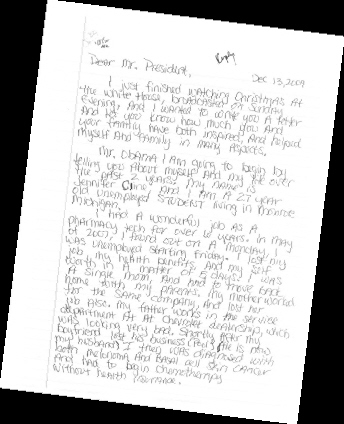 Reply
Dear Mr. President,
Dec 13, 2009
I just finished watching Christmas At
the White House, broadcasted on Sunday
Evening, And I wanted to write you A letter
And let you know how much you And
your family have both inspired, And helped
myself And family in many Aspects.
Mr. Obama I Am going to begin by
telling you About myself And my life over
the past 2 years. My name is
Jennifer Cline And I Am A 27 year
old unemployed STUDENT living in Monroe
Michigan.
I had A wonderful job As A
pharmacy tech for over 6 years. In may
of 2007, I found out on A Monday, I
was unemployed starting Friday. I lost my
job, my health benefits, And my self
worth in A matter of 5 days. I was
A single mom, And had to move back
home with my parents. My mother worked
for the same company, And lost her
job Also. My father works in the service
department At A Chevrolet dealership, which
was looking very bad. Shortly After my
boyfriend lost his business (he is now
my husband) I then was diagnosed with
both melanoma And basal cell skin cancer
And had to begin chemotherapy
without health insurance.